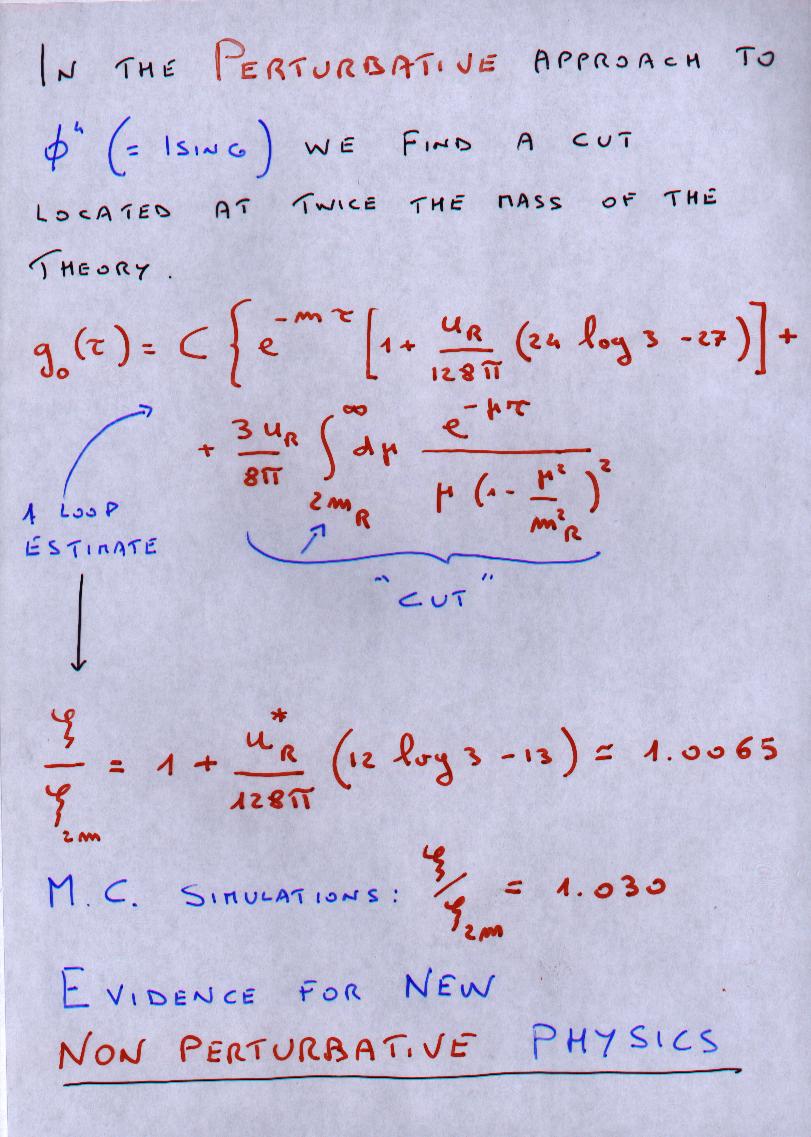 IN THE PERTURBATIVE APPROACH TO
ϕ⁴ (= ISING) WE FIND A CUT
LOCATED AT TWICE THE MASS OF THE
THEORY.
g₀(τ) = C { e^{-mτ} [ 1 + \frac{u_R}{128π} (24 log 3 - 27) ] +
+ \frac{3 u_R}{8π} ∫_{2m_R}^{∞} dμ \frac{e^{-μτ}}{μ (1 - \frac{μ²}{m²_R})²}
1 LOOP
ESTIMATE
"CUT"
\frac{ξ}{ξ_{2m}} = 1 + \frac{u_R^*}{128π} (12 log 3 - 13) ≃ 1.0065
M.C. SIMULATIONS: ξ/ξ_{2m} = 1.030
EVIDENCE FOR NEW
NON PERTURBATIVE PHYSICS